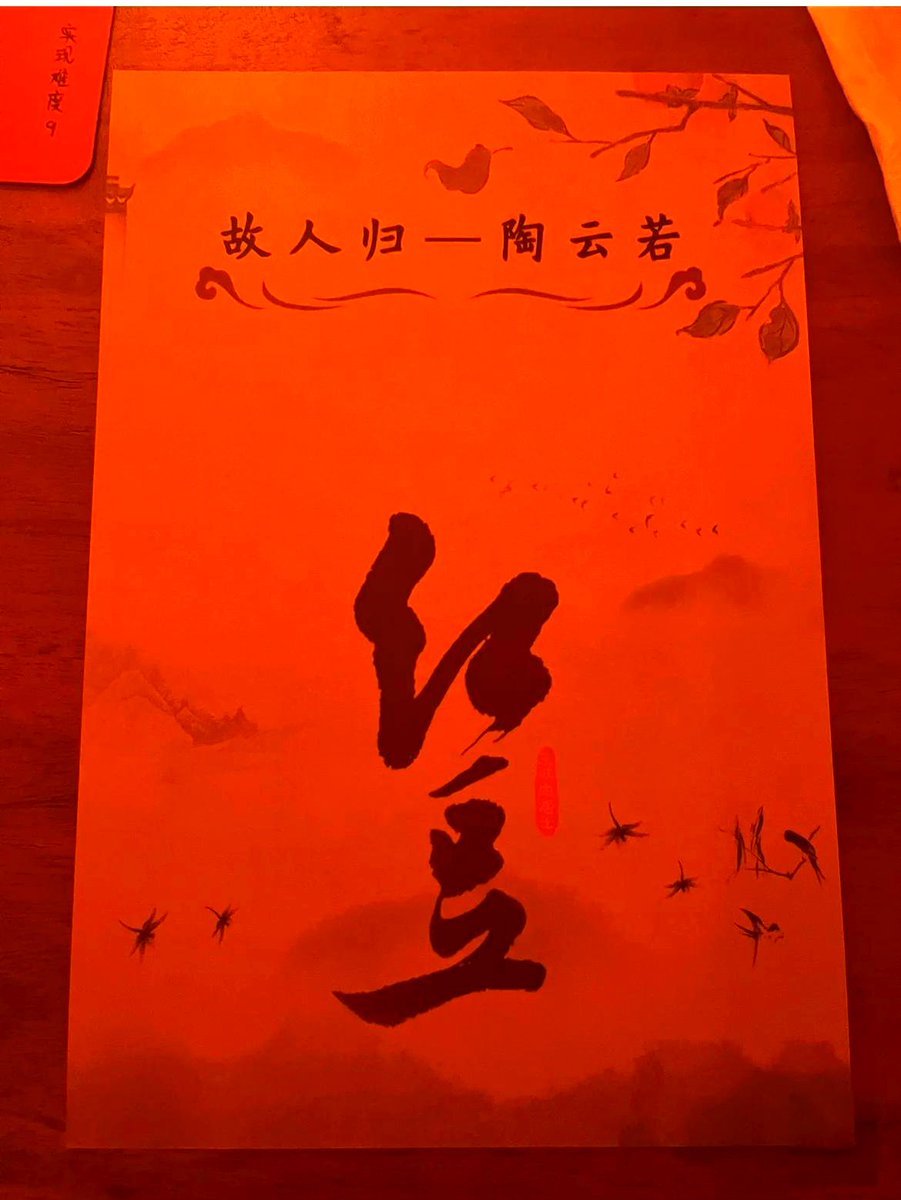 实现难度9
故人归—陶云若
红豆